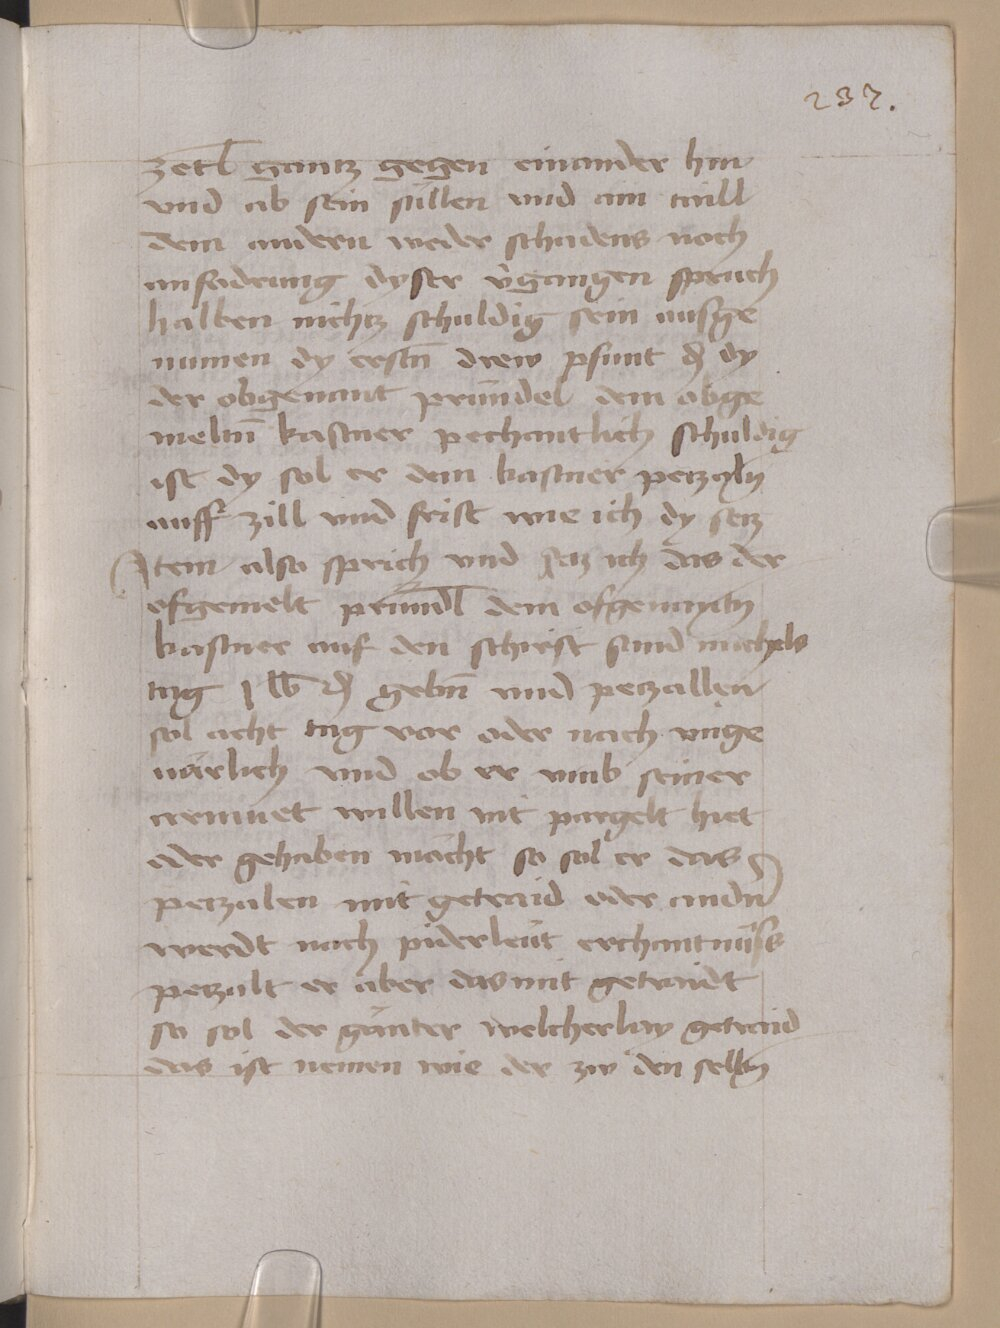 237.
zetl gantz gegen einander hin
vnd ab sein sullen vnd ain taill
dem andern weder schadens noch
anfodrung dyser v̈gangen spruch
halben nichtz schuldig sein ausge
numen dy erstn̄ drew pfunt ₰ dy
der obgenant prúndel dem obge
meltn̄ kastner pechantlich schuldig
ist dy sol er dem kastner petzaln
auff zill vnd frist wie ich dy setz
Item also sprich vnd setz ich das der
efgemelt prundl dem efgenantn
kastner auf den schirist sand michels
tag j lb ₰ gebn̄ vnd petzallen
sol acht tag vor oder nach vnge
uärlich vnd ob er vmb seiner
armuet willen nit pargelt hiet
oder gehaben mächt so sol er das
petzalen mit getraid oder andn̄
werdt nach piderleút erchantnúss
petzalt er aber das mit getraidt
so sol der gänter welcherlay getraid
das ist nemen wie der zw den selbn